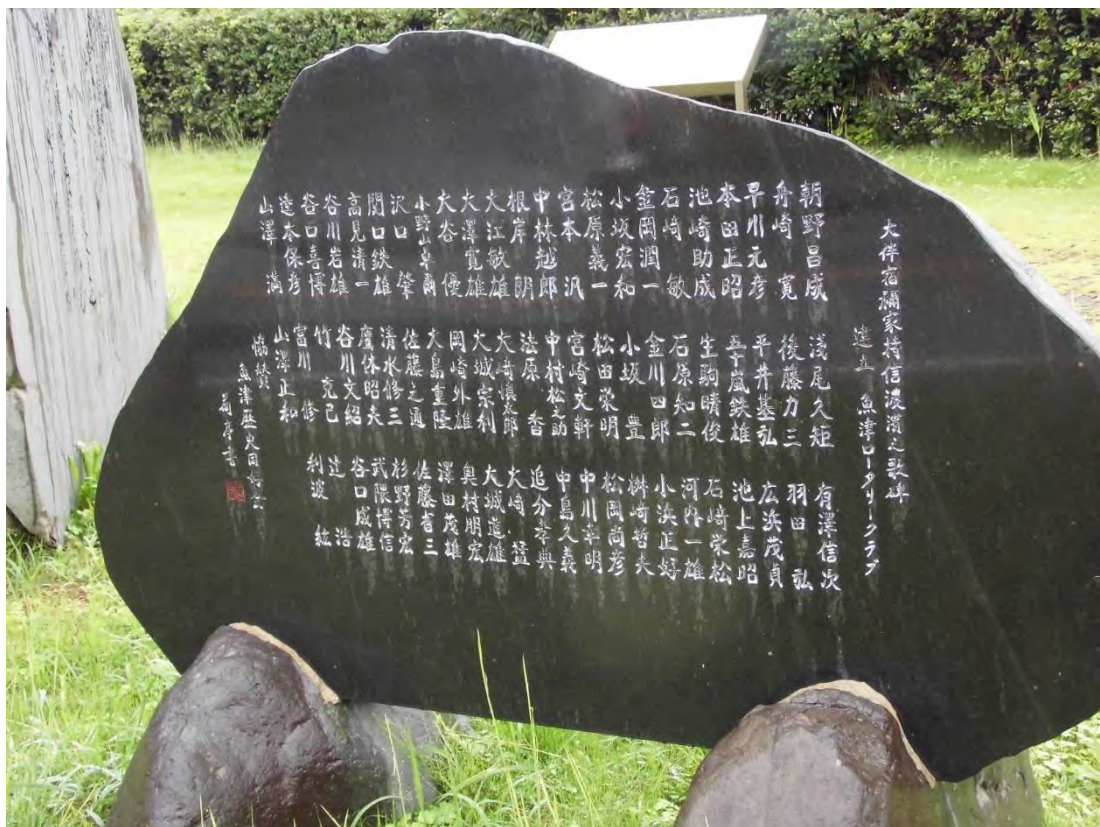 大伴宿禰家持信濃濱之歌碑
建立 魚津ロータリークラブ
朝野昌成 浅尾久矩 有澤信次
舟崎 寛 後藤力三 羽田 弘
早川元彦 平井基弘 広浜茂貞
本田正昭 五十嵐鉄雄 池上嘉昭
池崎助成 生駒晴俊 石崎栄松
石崎 敏 石原知二 河内一雄
金岡潤一 金川四郎 小浜正好
小坂宏和 小坂 豊 樹崎哲夫
松原義一 松田栄明 松岡尚彦
宮本 汎 宮崎文軒 中川幸明
中林越郎 中村松之助 中島久義
根岸 朗 法原 香 追分孝典
大江敏雄 大崎慎太郎 大崎
大澤寛雄 大城宗利 大城道雄
大谷 優 岡崎外雄 奥村明宏
小野山卓爾 大島重隆 澤田茂雄
沢口 肇 佐藤之通 佐藤省三
関口鉄雄 清水修三 杉野芳宏
高見清一 慶休昭夫 武隈博信
谷川岩雄 谷川文紹 谷口成雄
谷口喜博 竹 克己 辻 浩
逵本保彦 富川 修 利波 紘
山澤 満 山澤正和
協賛
魚津歴史同好会
書